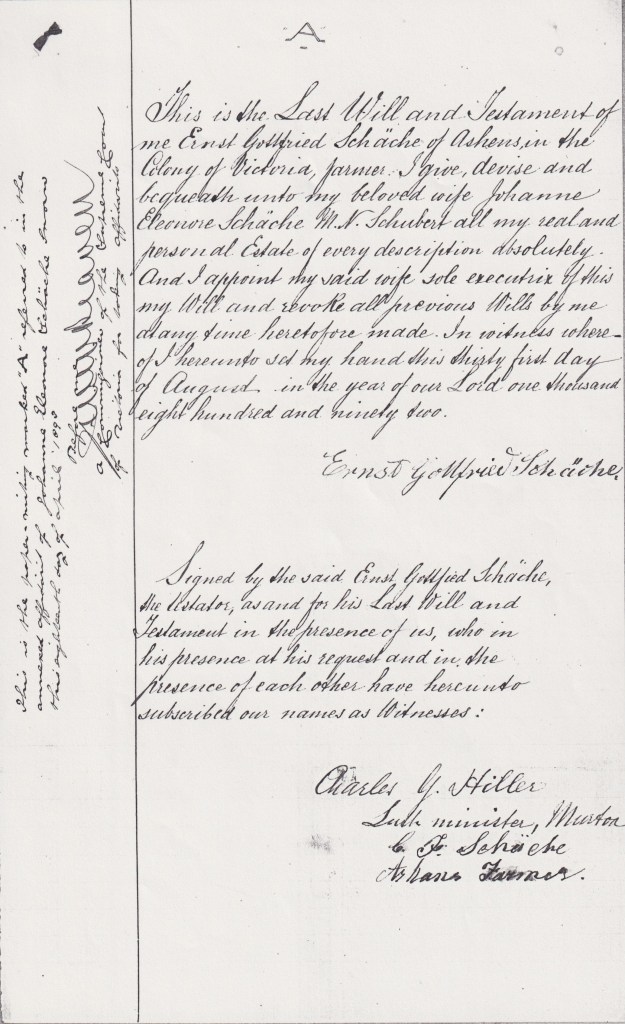 A
This is the Last Will and Testament of
me Ernst Gottfried Schäche of Ashens, in the
Colony of Victoria, farmer. I give, devise and
bequeath unto my beloved wife Johanne
Eleonore Schäche M.N. Schubert all my real and
personal Estate of every description absolutely.
And I appoint my said wife sole executrix of this
my Will and revoke all previous Wills by me
at any time heretofore made. In witness where-
of I hereunto set my hand this thirty first day
of August in the year of our Lord one thousand
eight hundred and ninety two.
Ernst Gottfried Schäche.
Signed by the said Ernst Gottfied Schäche,
the testator, as and for his Last Will and
Testament in the presence of us, who in
his presence at his request and in the
presence of each other have hereunto
subscribed our names as Witnesses:
Charles G. Hiller
Luth minister, Murtoa
C. F. Schäche
Ashens Farmer.
This is the paper-writing marked "A" referred to in the
annexed affidavit of Johanne Eleonore Schäche sworn
this eighteenth day of April 1893
Before
a Commissioner of the Supreme Court
of Victoria for taking affidavits